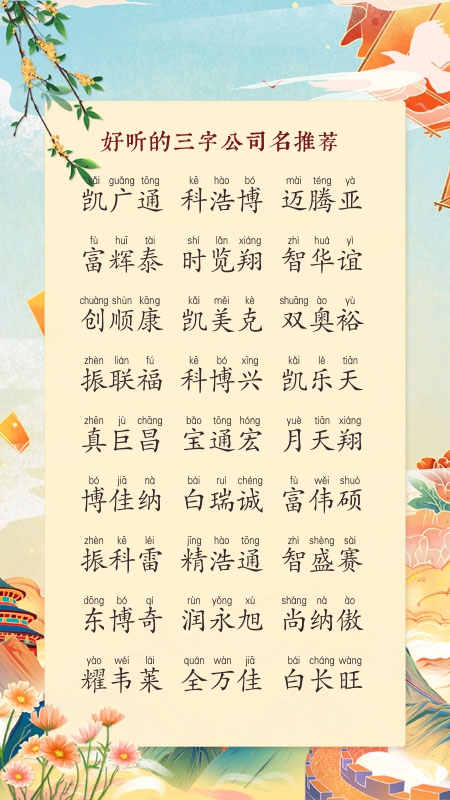 好听的三字公司名推荐
kǎi guǎng tōng kē hào bó mài téng yà
凯广通 科浩博 迈腾亚
fù huī tài shí lǎn xiáng zhì huá yì
富辉泰 时览翔 智华谊
chuàng shùn kāng kǎi měi kè shuāng ào yù
创顺康 凯美克 双奥裕
zhèn lián fú kē bó xīng kǎi lè tiān
振联福 科博兴 凯乐天
zhēn jù chāng bǎo tōng hóng yuè tiān xiáng
真巨昌 宝通宏 月天翔
bó jiā nà bái ruì chéng fù wěi shuò
博佳纳 白瑞诚 富伟硕
zhèn kē léi jīng hào tōng zhì shèng sài
振科雷 精浩通 智盛赛
dōng bó qí rùn yǒng xù shàng nà ào
东博奇 润永旭 尚纳傲
yào wéi lái quán wàn jiā bái cháng wàng
耀韦莱 全万佳 白长旺